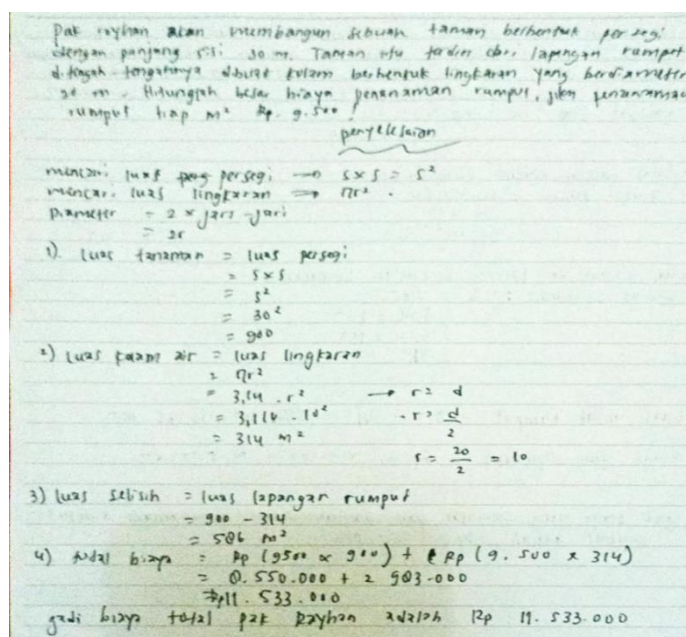 Pak rayhan akan membangun sebuah taman berbentuk persegi
dengan panjang sisi 30 m. Taman itu terdiri dari lapangan rumput
ditengah-tengahnya dibuat kolam berbentuk lingkaran yang berdiameter
20 m. Hitunglah besar biaya penanaman rumput, jika penanaman
rumput tiap m² Rp. 9.500!
penyelesaian
mencari luas persegi → s x s = s²
mencari luas lingkaran → πr².
Diameter = 2 x jari-jari
= 2r
1). Luas tanaman = luas persegi
= s x s
= s²
= 30²
= 900
2) Luas kolam air = luas lingkaran
= πr²
= 3,14 . r² → r = d
= 3,14 . 10² - r = d/2
= 314 m²
r = 20/2 = 10
3) luas selisih = luas lapangan rumput
= 900 - 314
= 586 m²
4) total biaya = Rp (9500 x 900) + (Rp (9.500 x 314)
= 8.550.000 + 2 983.000
= Rp 11.533.000
jadi biaya total pak Rayhan adalah Rp 11.533.000